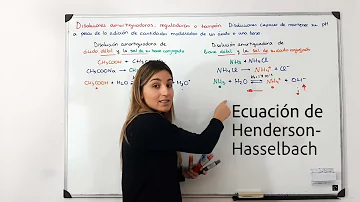 Disoluciones amortiguadoras, reguladoras o tampón. Disoluciones capaces de mantener su pH
a pesar de la adición de cantidades moderadas de un ácido o una base.
Disolución amortiguadora de
ácido débil y la sal de su base conjugada
CH₃COOH + CH₃COO
CH₃COONa → CH₃C
CH₃COOH + H₂O
H₃O⁺
Disolución amortiguadora de
base débil y la sal de su ácido conjugado
NH₃ + NH₄Cl
NH₄Cl → NH₄⁺ + Cl⁻
NH₃ + H₂O ⇌ NH₄⁺ + OH⁻
Ecuación de
Henderson-
Hasselbach